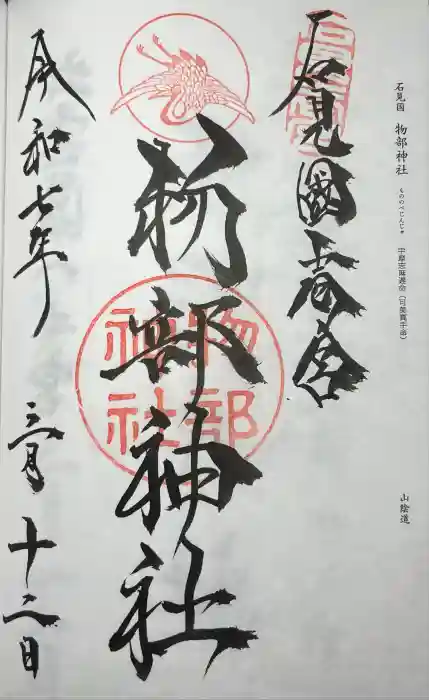 石見国 物部神社 もののべじんじゃ 宇摩志麻遅命（可美真手命）
山陰道
石見國一之宮
物部神社
物部神社
令和七年 三月十二日